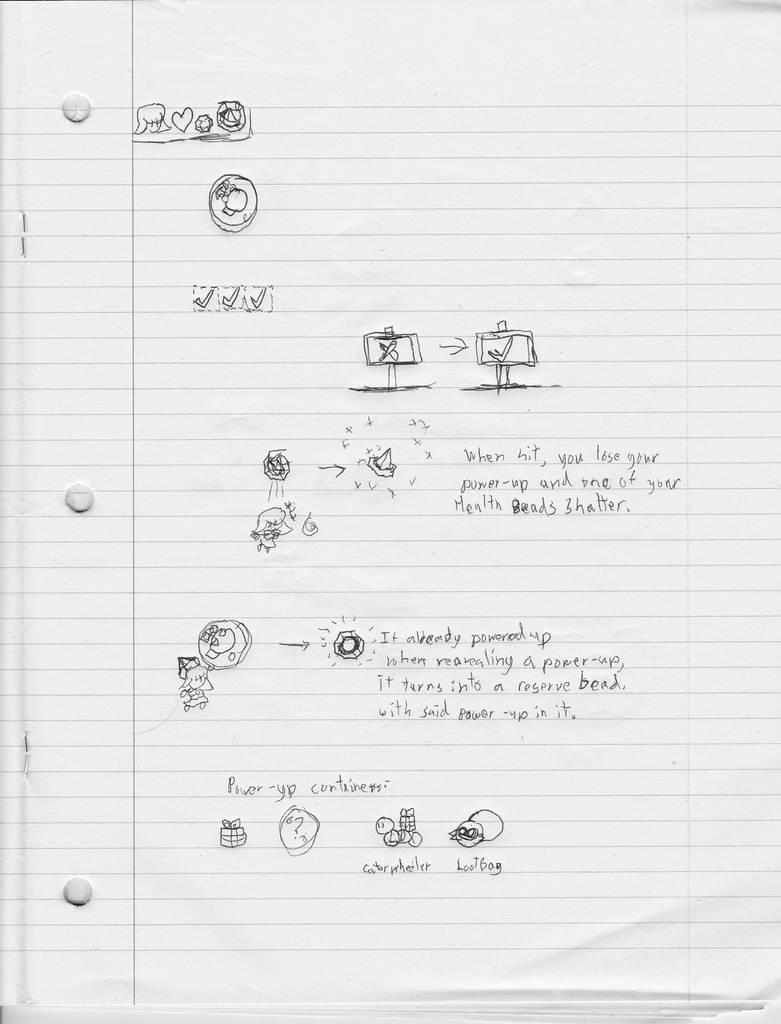 When hit, you lose your
power-up and one of your
Health Beads Shatter.
If already powered up
when revealing a power-up,
it turns into a reserve bead.
with said power-up in it.
Power-up containers:
?
Caterwheeler LootBag